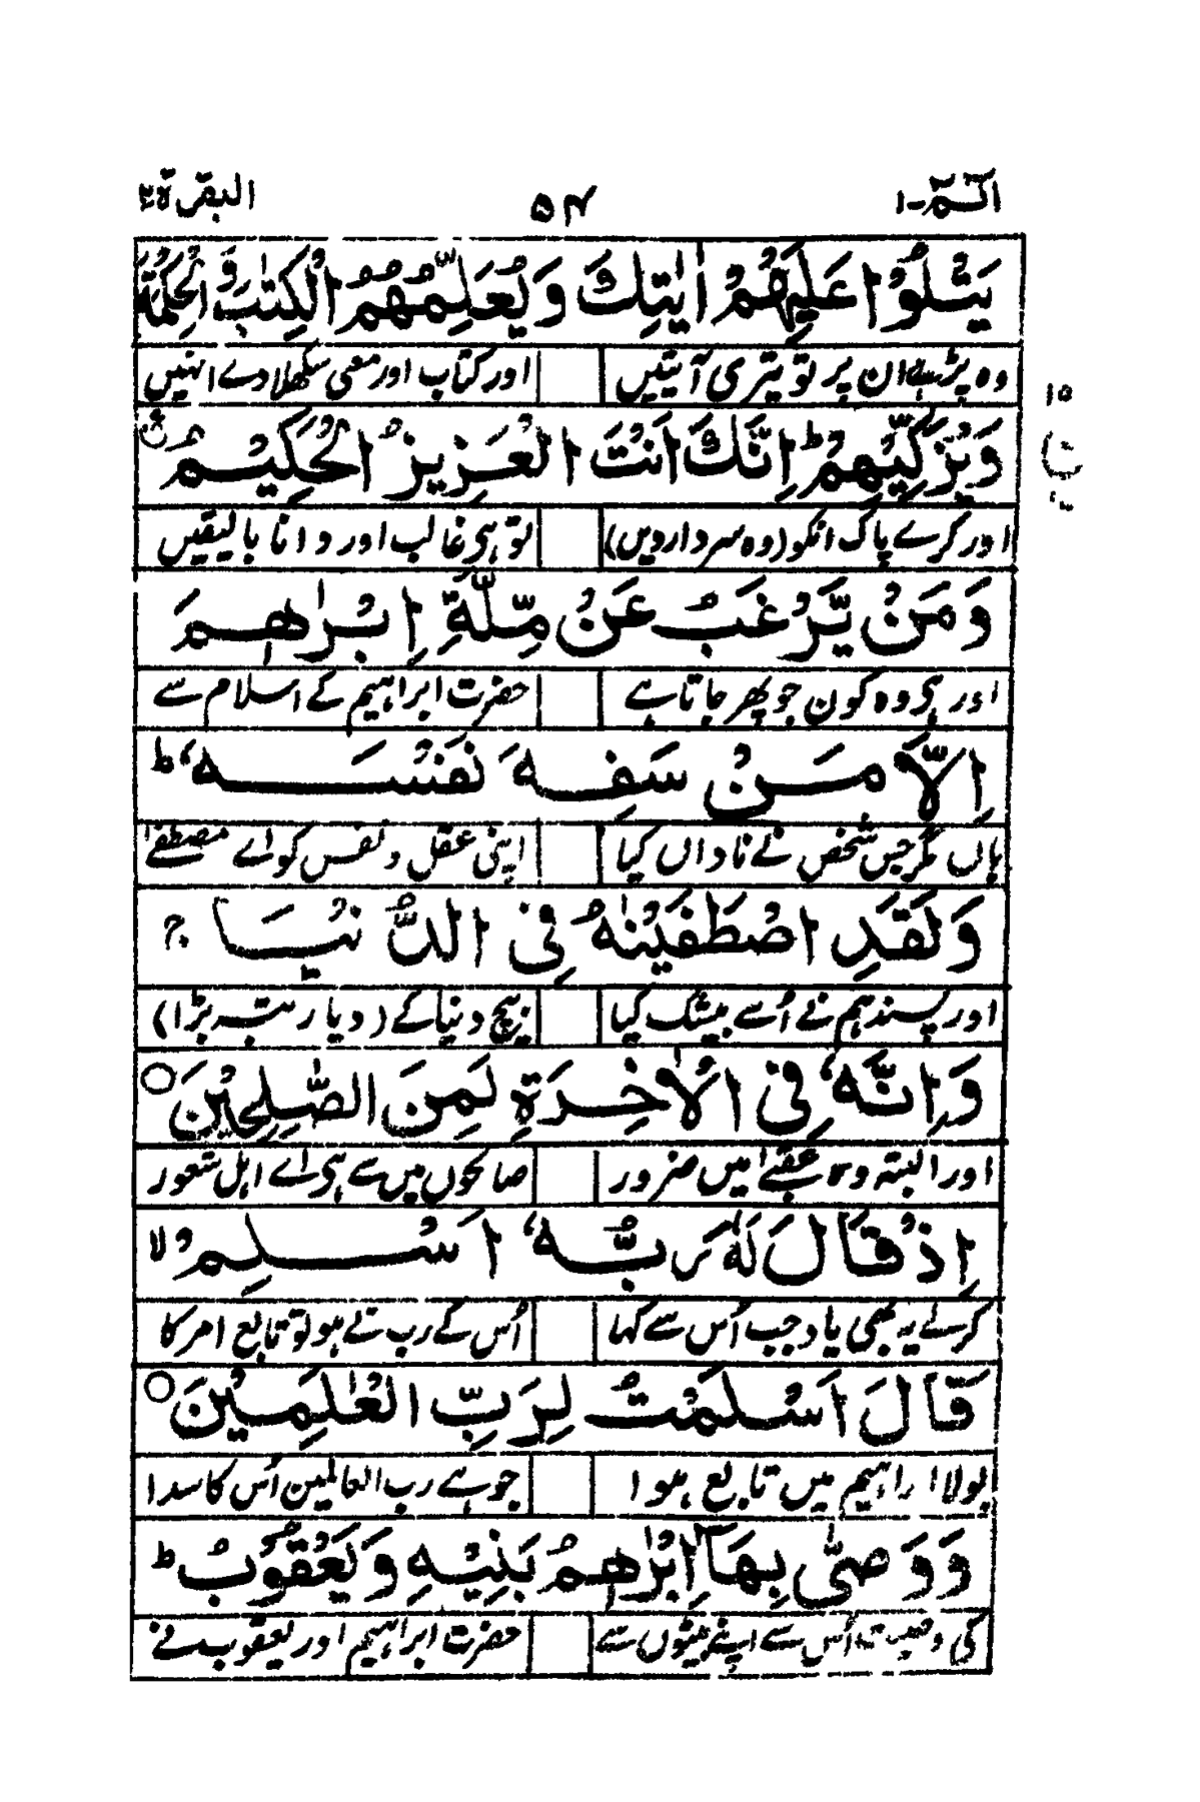 الٓـمّٓ-۱ ۵۴ البقرۃ ۲
يَتْلُوْا عَلَيْهِمْ اٰيٰتِكَ وَيُعَلِّمُهُمُ الْكِتٰبَ وَالْحِكْمَةَ
وہ پڑھے ان پر تو تیری آیتیں اور کتاب اور معنی سکھلا دے انہیں
۱۵
وَيُزَكِّيْهِمْ ؕ اِنَّكَ اَنْتَ الْعَزِيْزُ الْحَكِيْمُ ع
اور کرے پاک انکو (وہ سردار دیں) تو ہی غالب اور دانا بالیقیں
وَمَنْ يَّرْغَبُ عَنْ مِّلَّةِ اِبْرٰهٖمَ
اور ہی وہ کون جو پھر جاتا ہے حضرت ابراہیم کے اسلام سے
اِلَّا مَنْ سَفِهَ نَفْسَهٗ ؕ
ہاں مگر جس شخص نے ناداں کیا اپنی عقل و نفس کو اے مصطفےٰ
وَلَقَدِ اصْطَفَيْنٰهُ فِى الدُّنْيَا ج
اور پسند ہم نے اُسے بیشک کیا بیچ دنیا کے (دیا رتبہ بڑا)
وَاِنَّهٗ فِى الْاٰخِرَةِ لَمِنَ الصّٰلِحِيْنَ ○
اور البتہ وہ عقبےٰ میں ضرور صالحوں میں سے ہی اے اہل شعور
اِذْ قَالَ لَهٗ رَبُّهٗ اَسْلِمْ لا
کرلے یہ بھی یاد جب اُس سے کہا اُس کے رب نے ہو تو تابع امر کا
قَالَ اَسْلَمْتُ لِرَبِّ الْعٰلَمِيْنَ ○
بولا ابراہیم میں تابع ہوا جو ہے رب العالمین اُس کا سدا
وَوَصّٰى بِهَآ اِبْرٰهٖمُ بَنِيْهِ وَيَعْقُوْبُ ؕ
کی وصیت اُس سے اپنے بیٹوں سے حضرت ابراہیم اور یعقوب نے